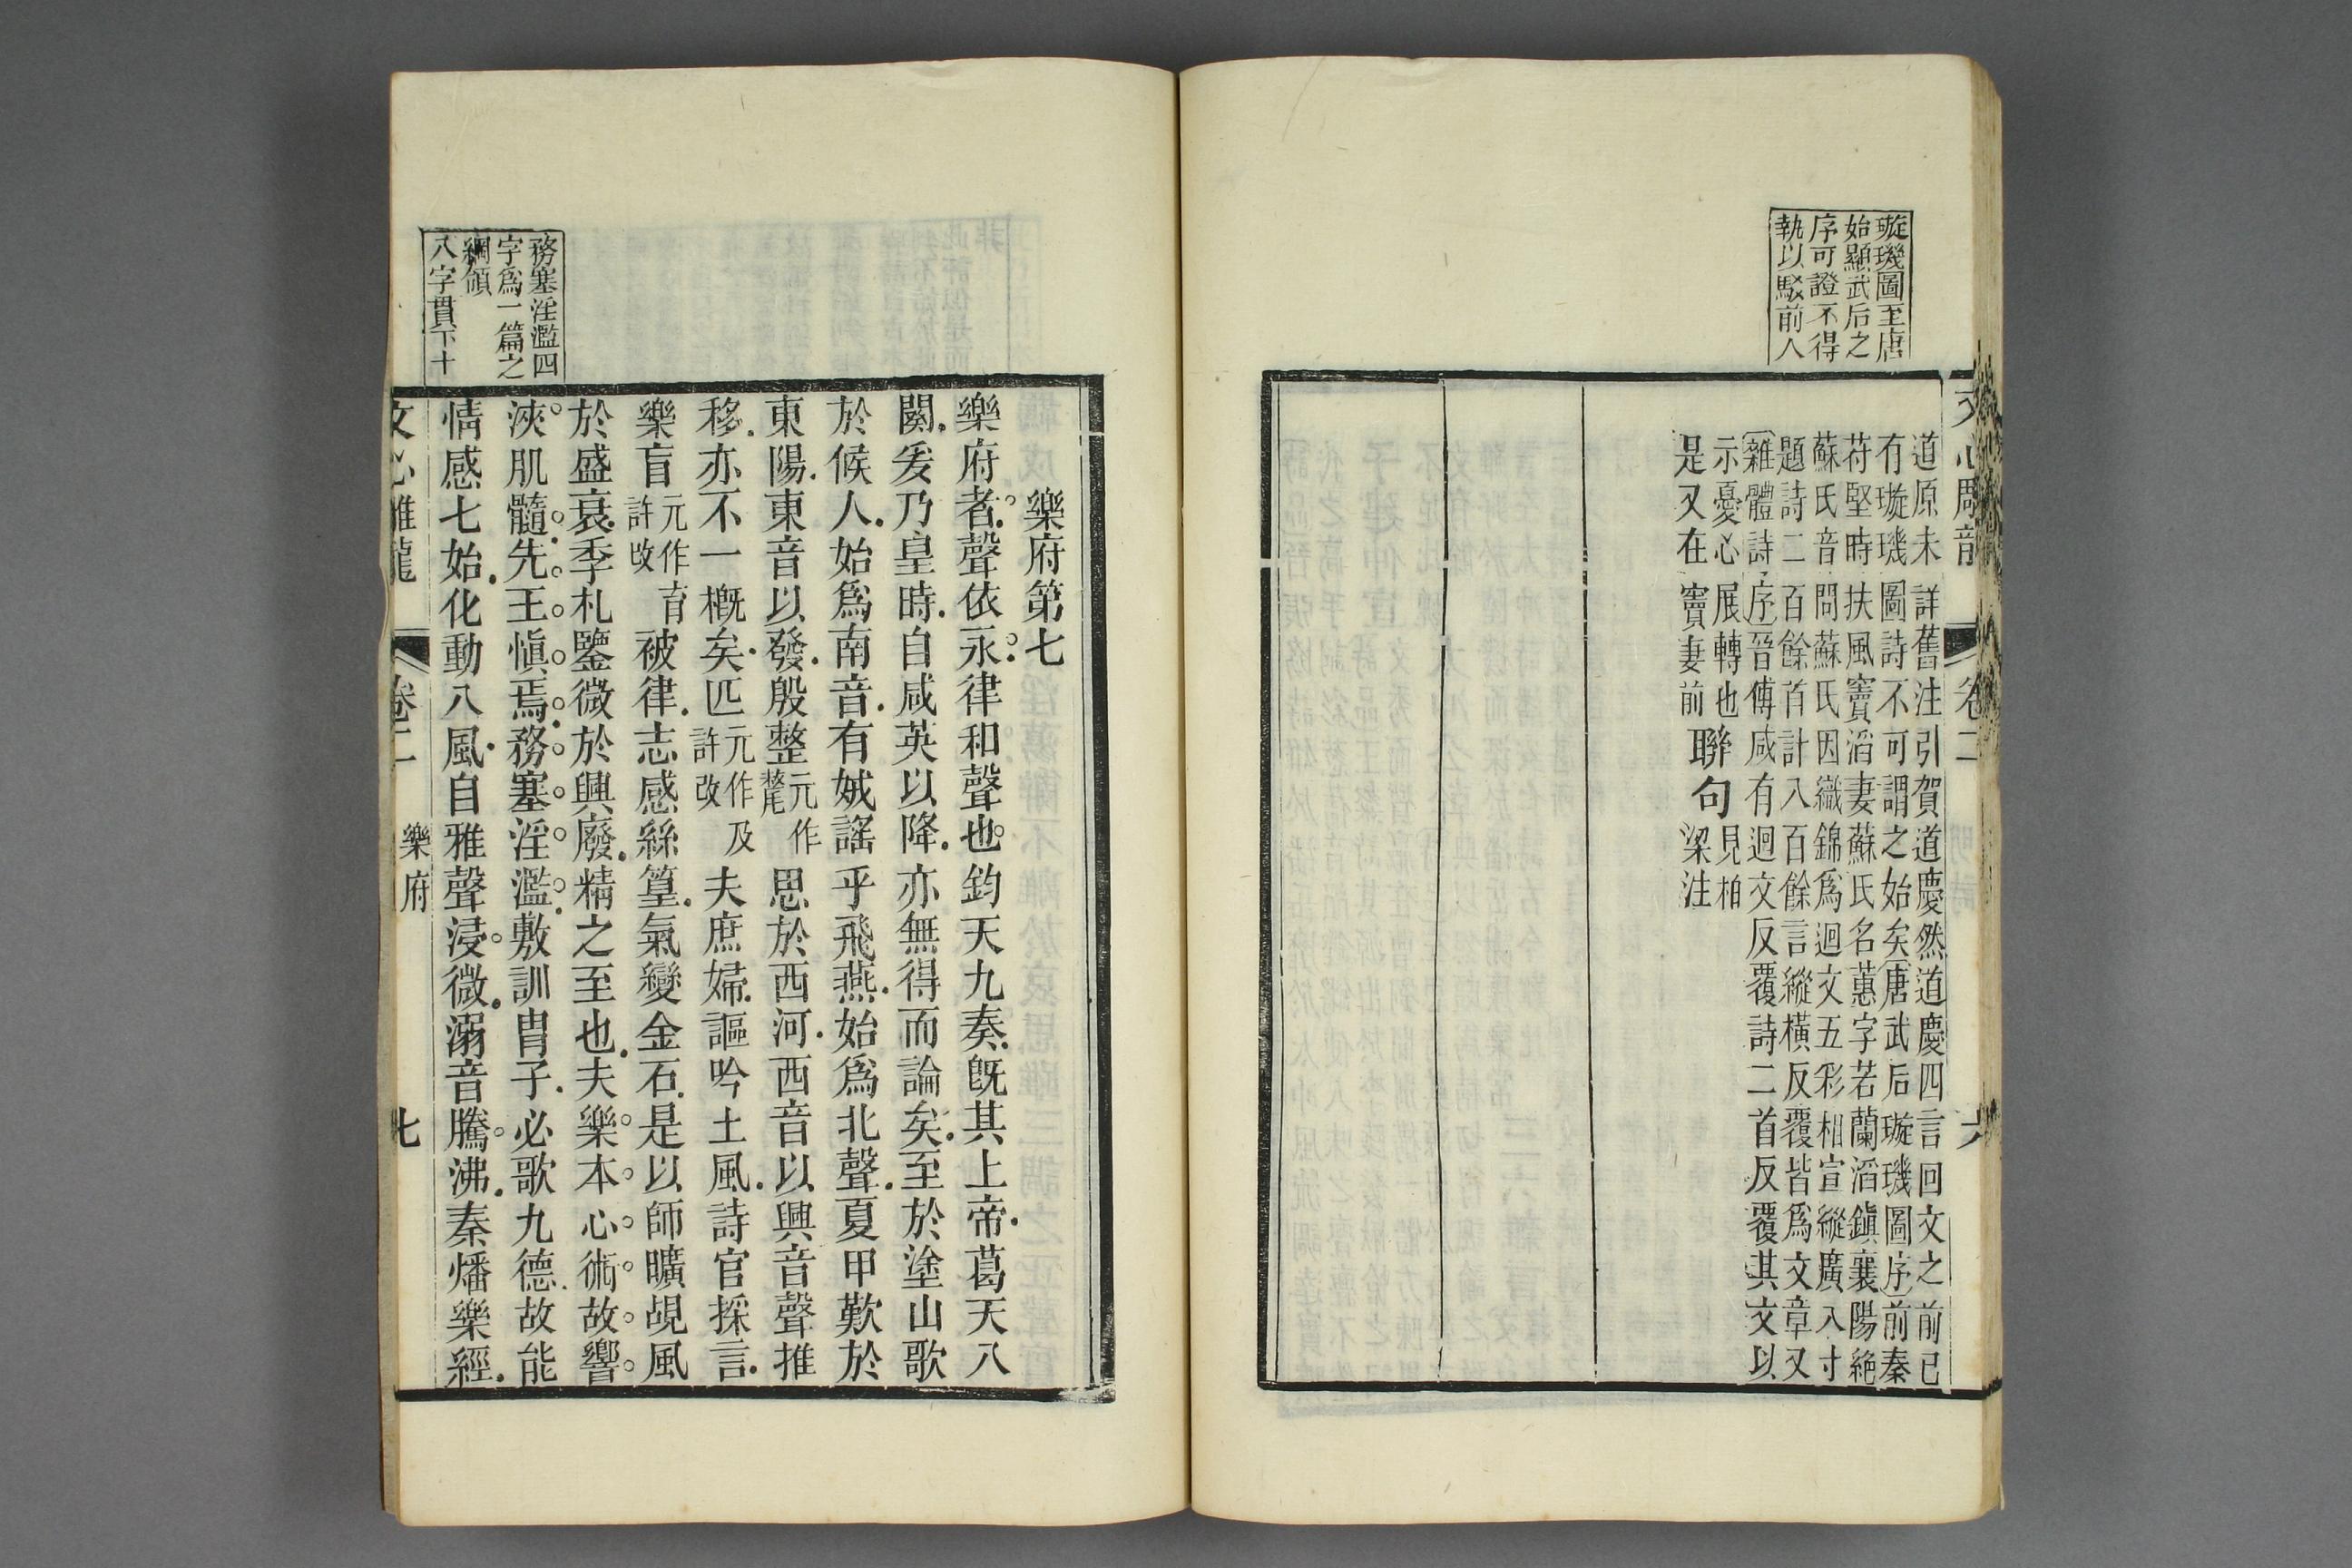 璇璣圖至唐
始顯武后之
序可證不得
執以駁前人
文心雕龍 卷二 六
道原未詳舊注引賀道慶然道慶四言回文之前已
有璇璣圖詩不可謂之始矣唐武后璇璣圖序前秦
苻堅時扶風竇滔妻蘇氏名蕙字若蘭滔鎮襄陽絶
蘇氏音問蘇氏因織錦爲迴文五彩相宣縱廣八寸
題詩二百餘首計八百餘言縱橫反覆皆爲文章又
雜體詩序晉傅咸有迴文反覆詩二首反覆其文以
示憂心展轉也
是又在竇妻前
聯句
見柏
梁注
務塞淫濫四
字爲一篇之
綱領
八字貫下十
樂府第七
樂府者聲依永律和聲也鈞天九奏旣其上帝葛天八
闋爰乃皇時自咸英以降亦無得而論矣至於塗山歌
於候人始爲南音有娀謠乎飛燕始爲北聲夏甲歎於
東陽東音以發殷整元作氂思於西河西音以興音聲推
移亦不一槪矣匹元作及許改夫庶婦謳吟土風詩官採言
樂盲元作育許改被律志感絲篁氣變金石是以師曠覘風
於盛衰季札鑒微於興廢精之至也夫樂本心術故響
浹肌髓先王愼焉務塞淫濫敷訓胄子必歌九德故能
情感七始化動八風自雅聲浸微溺音騰沸秦燔樂經
文心雕龍 卷二 樂府 七